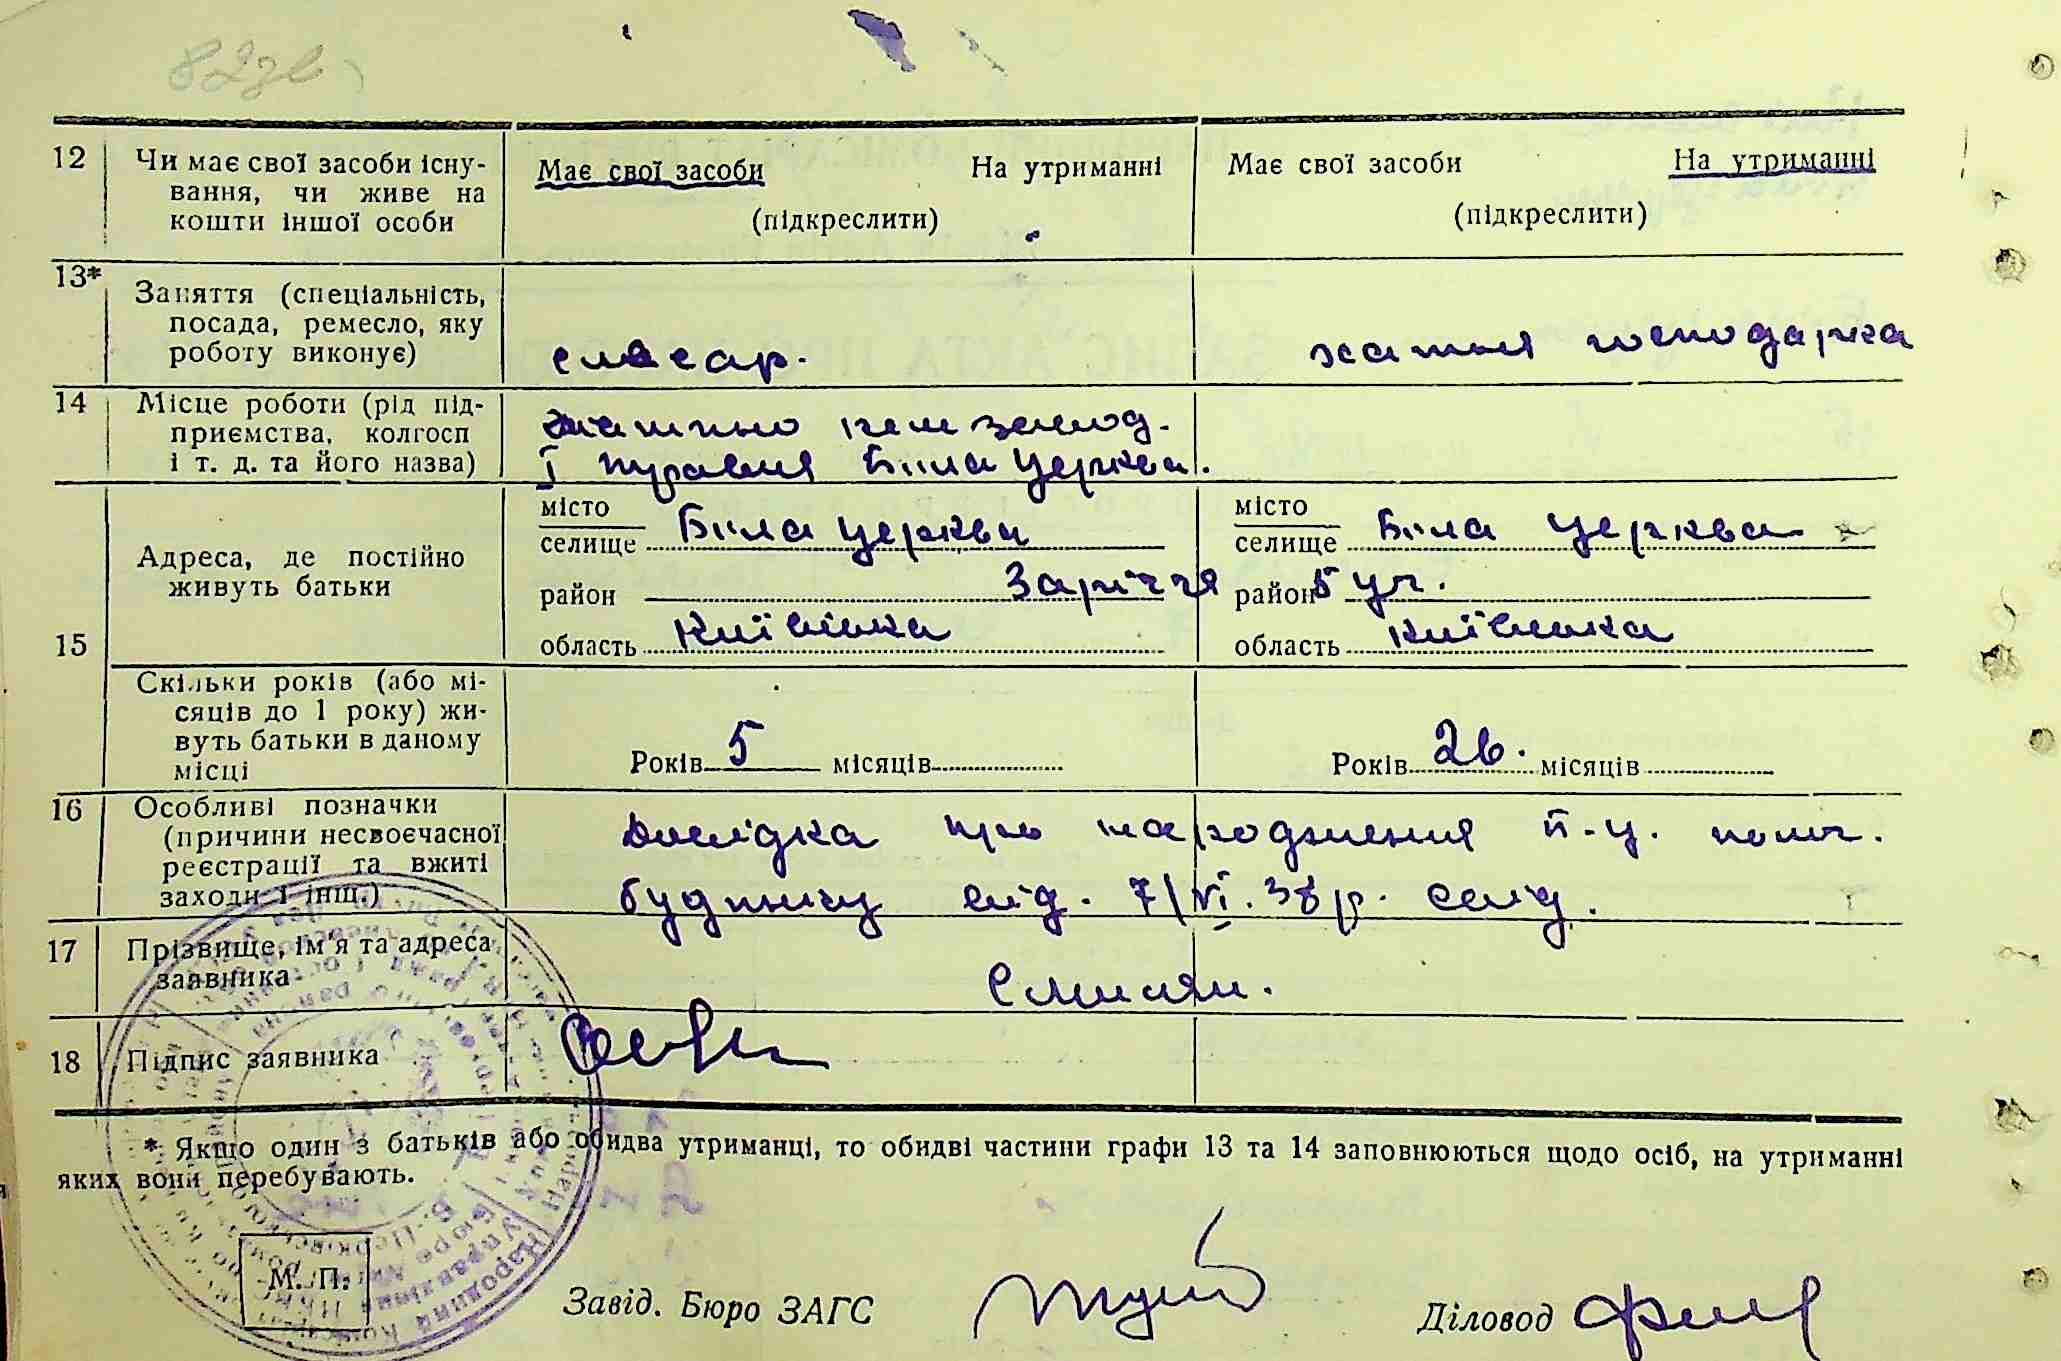 82зв
12 Чи має свої засоби існу-
вання, чи живе на
кошти іншої особи
Має свої засоби На утриманні
(підкреслити)
Має свої засоби На утриманні
(підкреслити)
13* Заняття (спеціальність,
посада, ремесло, яку
роботу виконує)
слюсар.
хатня господарка
14 Місце роботи (рід під-
приємства, колгосп
і т. д. та його назва)
Біла Церква.
15 Адреса, де постійно
живуть батьки
місто
селище Біла Церква
район Заріччя
область Київська
місто
селище Біла Церква
район 5 уч.
область Київська
Скільки років (або мі-
сяців до 1 року) жи-
вуть батьки в даному
місці
Років 5 місяців
Років 26. місяців
16 Особливі позначки
(причини несвоєчасної
реєстрації та вжиті
заходи і інш.)
Довідка про народження п-у. полог.
будинку від. 7/VI. 38 р.
17 Прізвище, ім'я та адреса
заявника
18 Підпис заявника
* Якщо один з батьків або обидва утриманці, то обидві частини графи 13 та 14 заповнюються щодо осіб, на утриманні
яких вони перебувають.
М. П.
Завід. Бюро ЗАГС
Діловод